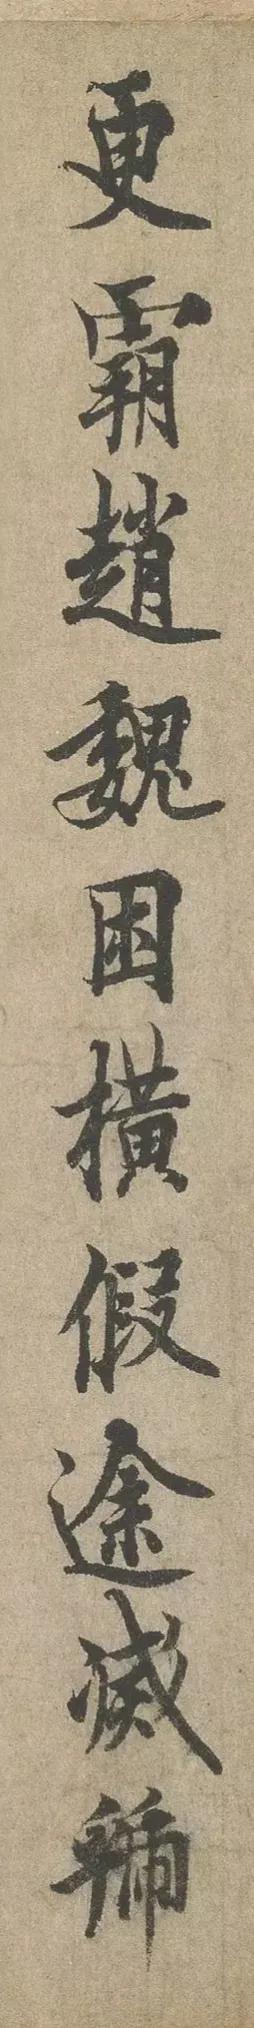 更霸趙魏困橫假途滅虢